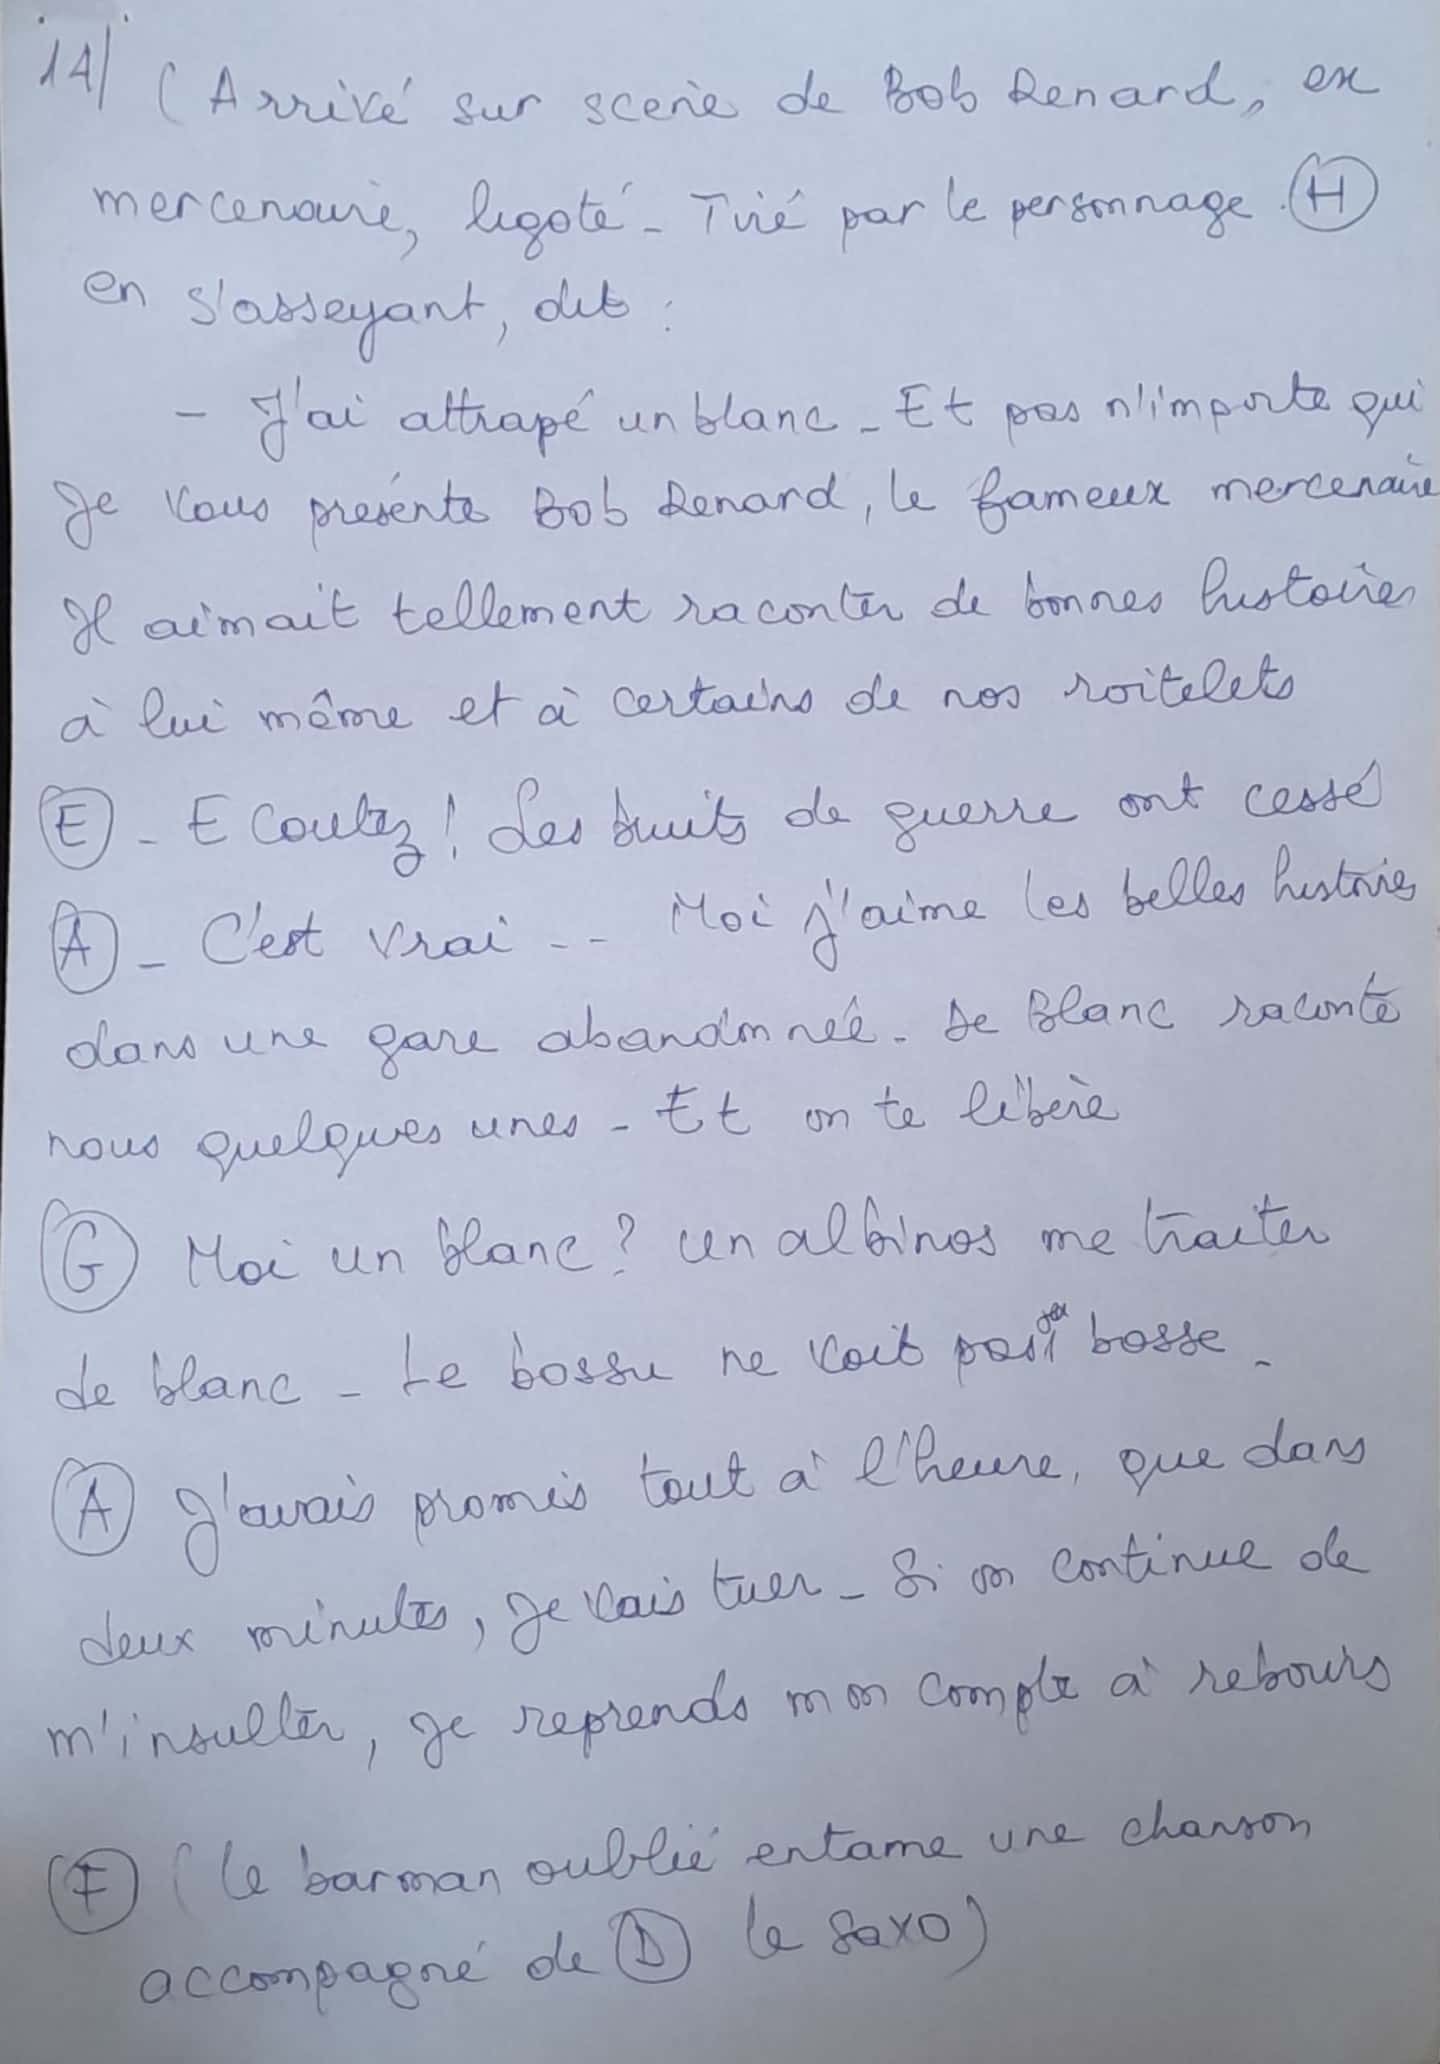 14/ (Arrivé sur scène de Bob Denard, ex
mercenaire, ligoté - Tiré par le personnage (H)
en s'asseyant, dit :
- J'ai attrapé un blanc - Et pas n'importe qui
Je vous présente Bob Denard, le fameux mercenaire
Il aimait tellement raconter de bonnes histoires
à lui même et à certains de nos roitelets
(E) - Ecoutez ! Les bruits de guerre ont cessé
(A) - C'est vrai -- Moi j'aime les belles histoires
dans une gare abandonnée - Le Blanc raconte
nous quelques unes - Et on te libère
(G) Moi un blanc ? Un albinos me traiter
de blanc - Le bossu ne voit pas sa bosse -
(A) J'avais promis tout à l'heure, que dans
deux minutes, je vais tuer - Si on continue de
m'insulter, je reprends mon compte à rebours
(F) (le barman oublié entame une chanson
accompagné de (D) le saxo)